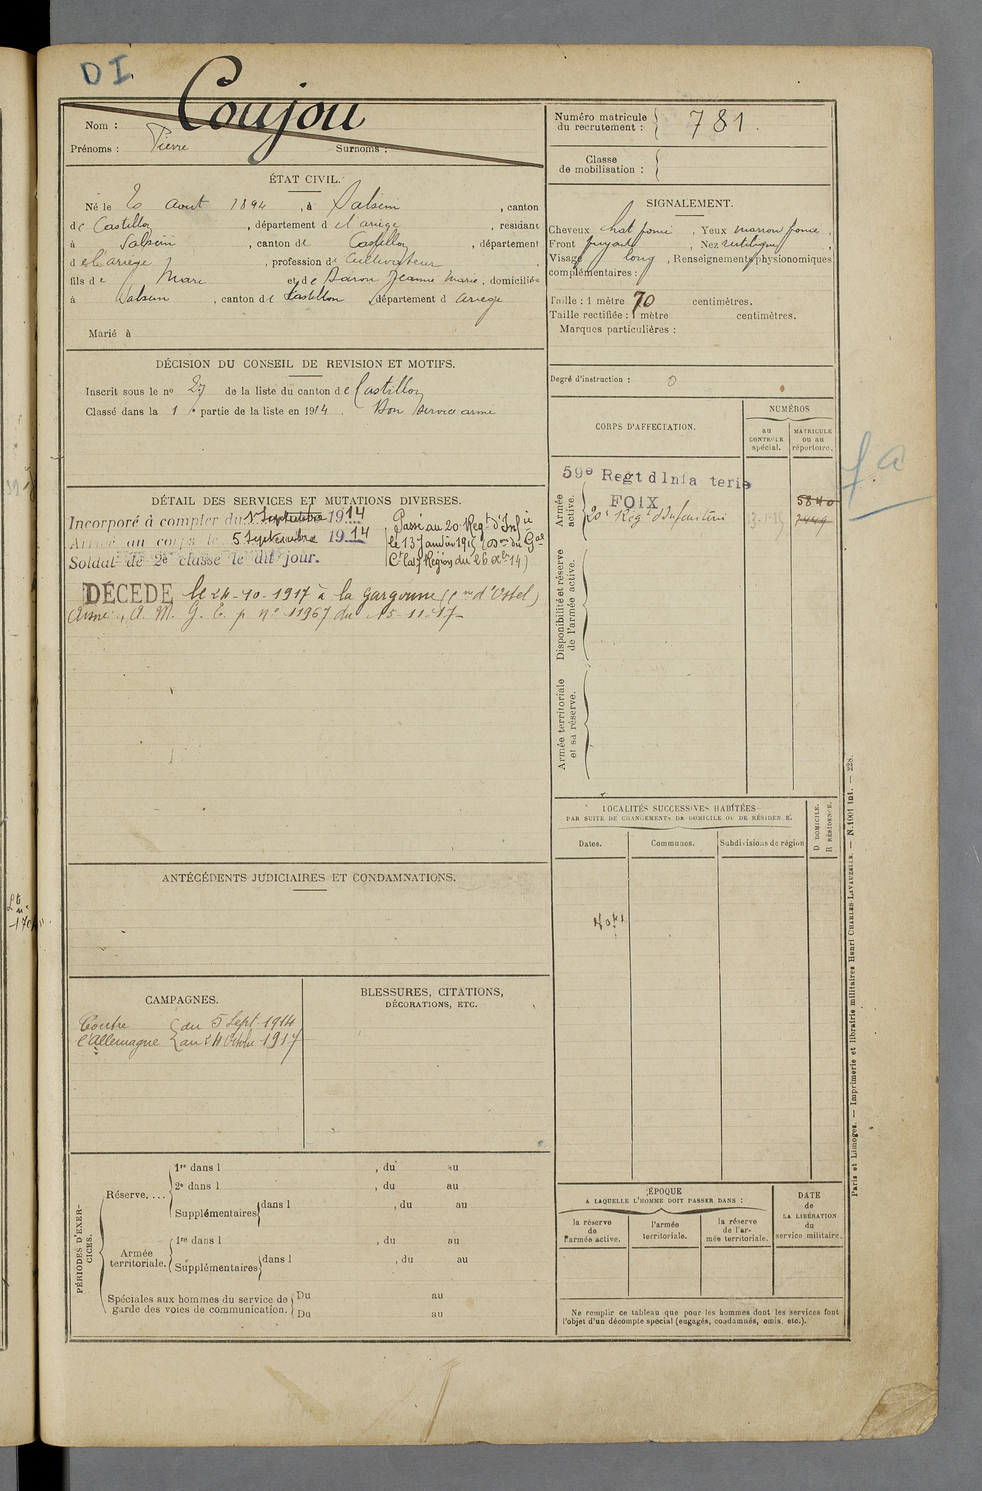 DI
Coujou
Nom :
Prénoms : Pierre Surnoms :
Numéro matricule
du recrutement : 781.
Classe
de mobilisation :
ÉTAT CIVIL.
Né le 20 aout 1894, à Salsein, canton
de Castillon, département de l'ariège, résidant
à Salsein, canton de Castillon, département
de l'ariège, profession de Cultivateur
fils de Marc et de Baron Jeanne Marie, domiciliés
à Salsein, canton de Castillon, département d ariège
Marié à
SIGNALEMENT.
Cheveux chat foncé, Yeux marron foncé,
Front fuyant, Nez rectiligne,
Visage long, Renseignements physionomiques
complémentaires :
Taille : 1 mètre 70 centimètres.
Taille rectifiée : 1 mètre centimètres.
Marques particulières :
Degré d'instruction : 0
DÉCISION DU CONSEIL DE REVISION ET MOTIFS.
Inscrit sous le no 27 de la liste du canton de Castillon
Classé dans la 1 e partie de la liste en 1914. Bon service armé
DÉTAIL DES SERVICES ET MUTATIONS DIVERSES.
Incorporé à compter du 1 Septembre 1914
Arrivé au corps le 5 Septembre 1914
Soldat de 2e classe le dit jour.
Passé au 20e Regt d'Infie
le 13 Janvier 1915 (Don du Gal
Ct la 17 Région du 26 Xbre 14)
DÉCÉDÉ le 24-10-1917 à la Gargonne (Cne d'Ostel)
(Aisne), A. M. G. E. p no 11967 du 15-11-17
CORPS D'AFFECTATION.
NUMÉROS
au
CONTRÔLE
spécial.
MATRICULE
ou au
répertoire.
Armée
active.
59e Regt d Infa terie
FOIX
20e Régt d'Infanterie
5840
fa
Disponibilité et réserve
de l'armée active.
Armée territoriale
et sa réserve.
LOCALITÉS SUCCESSIVES HABITÉES
PAR SUITE DE CHANGEMENTS DE DOMICILE OU DE RÉSIDENCE.
Dates.
Communes.
Subdivisions de région
D. DOMICILE.
R. RÉSIDENCE.
ANTÉCÉDENTS JUDICIAIRES ET CONDAMNATIONS.
CAMPAGNES.
Contre du 5 Sept 1914
l'Allemagne au 24 Octobre 1917
BLESSURES, CITATIONS,
DÉCORATIONS, ETC.
PÉRIODES D'EXER-
CICES.
Réserve....
1re dans l , du au
2e dans l , du au
Supplémentaires dans l , du au
Armée
territoriale.
1re dans l , du au
Supplémentaires dans l , du au
Spéciales aux hommes du service de
garde des voies de communication.
Du au
Du au
ÉPOQUE
A LAQUELLE L'HOMME DOIT PASSER DANS :
la réserve
de
l'armée active.
l'armée
territoriale.
la réserve
de l'ar-
mée territoriale.
DATE
de
LA LIBÉRATION
du
service militaire.
Ne remplir ce tableau que pour les hommes dont les services font
l'objet d'un décompte spécial (engagés, condamnés, omis, etc.).
Paris et Limoges. — Imprimerie et librairie militaires Henri CHARLES-LAVAUZELLE. — N. 1001 Int. — 228.